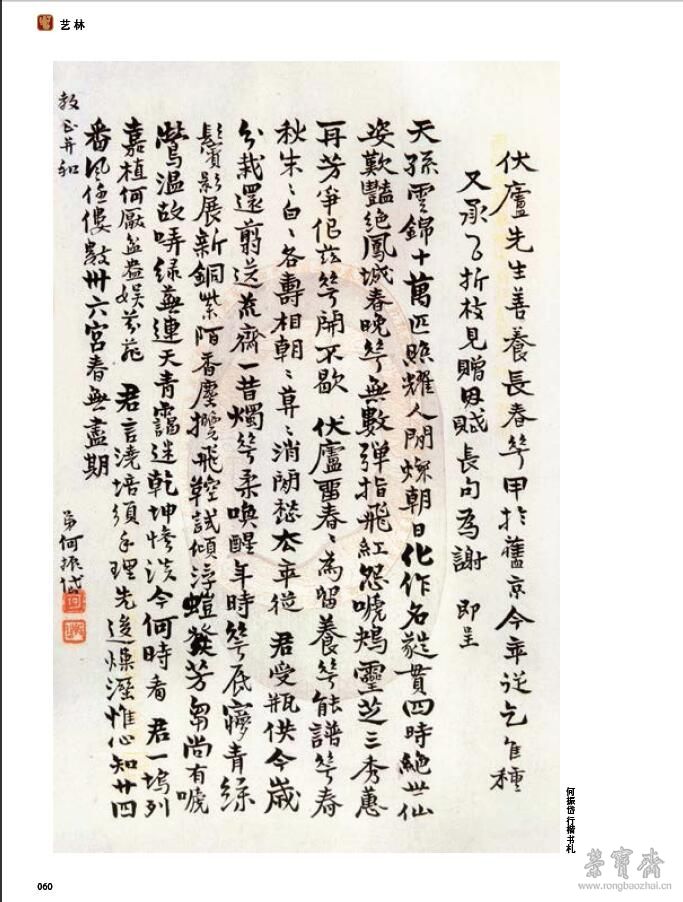 艺林
伏廬先生善養長春花甲於舊京今年從乞佳種
又承以折枝見贈因賦長句為謝 即呈
天孫雲錦十萬匹照耀人間燦朝日化作名葩貫四時絕世仙
姿歎豔絕鳳城春晚花無數彈指飛紅怨啼鴂靈芝三秀蕙
再芳爭似茲花開不歇 伏廬留春〻為留養花能譜花春
秋朱〻白〻各壽相朝〻莫〻消閑愁去年從 君受瓶供今歲
分栽還翦送流齋一昔燭花柔喚醒年時花底夢青絲
鬢影展新銅紫陌香塵攬飛鞚試傾浮螘發芳芻尚有啼
鶯温故哢綠蕪連天青靄迷乾坤慘淡今何時看 君一塢列
嘉植何厭盆盎娛芬菲 君言澆培須手理先後燥溼惟心知廿四
番風任僂數卅六宮春無盡期
弟何振岱
教正并和
何振岱行楷书札
060
榮寶齋
www.rongbaozhai.cn